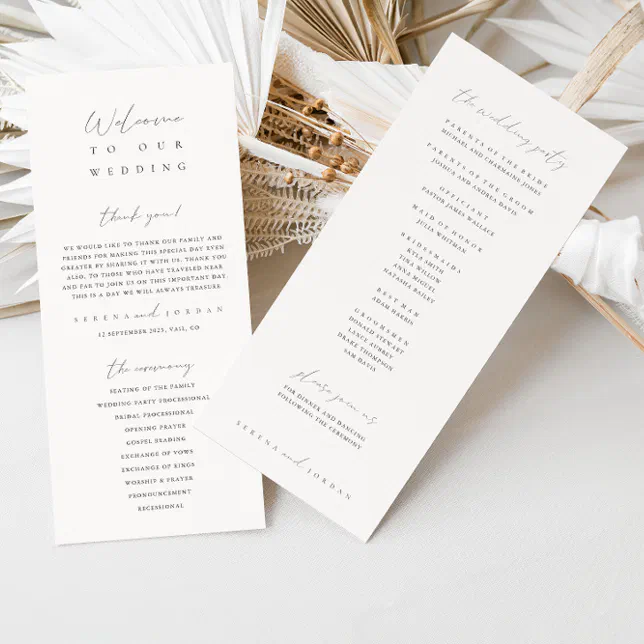 Welcome
TO OUR
WEDDING
thank you!
WE WOULD LIKE TO THANK OUR FAMILY AND
FRIENDS FOR MAKING THIS SPECIAL DAY EVEN
GREATER BY SHARING IT WITH US. THANK YOU
ALSO, TO THOSE WHO HAVE TRAVELED NEAR
AND FAR TO JOIN US ON THIS IMPORTANT DAY.
THIS IS A DAY WE WILL ALWAYS TREASURE.
SERENA and JORDAN
12 SEPTEMBER 2023, VAIL, CO
the ceremony
SEATING OF THE FAMILY
WEDDING PARTY PROCESSIONAL
BRIDAL PROCESSIONAL
OPENING PRAYER
GOSPEL READING
EXCHANGE OF VOWS
EXCHANGE OF RINGS
WORSHIP & PRAYER
PRONOUNCEMENT
RECESSIONAL
the wedding party
PARENTS OF THE BRIDE
MICHAEL AND CHARMAINE JONES
PARENTS OF THE GROOM
JOSHUA AND ANDREA DAVIS
OFFICIANT
PASTOR JAMES WALLACE
MAID OF HONOR
JULIA WHITMAN
BRIDESMAIDS
KYLA SMITH
TINA WILLOW
ANNA MIGUEL
NATASHA BAILEY
BEST MAN
ADAM HARRIS
GROOMSMEN
DONALD STEWART
LANCE AUBREY
DRAKE THOMPSON
SAM DAVIS
please join us
FOR DINNER AND DANCING
FOLLOWING THE CEREMONY
SERENA and JORDAN